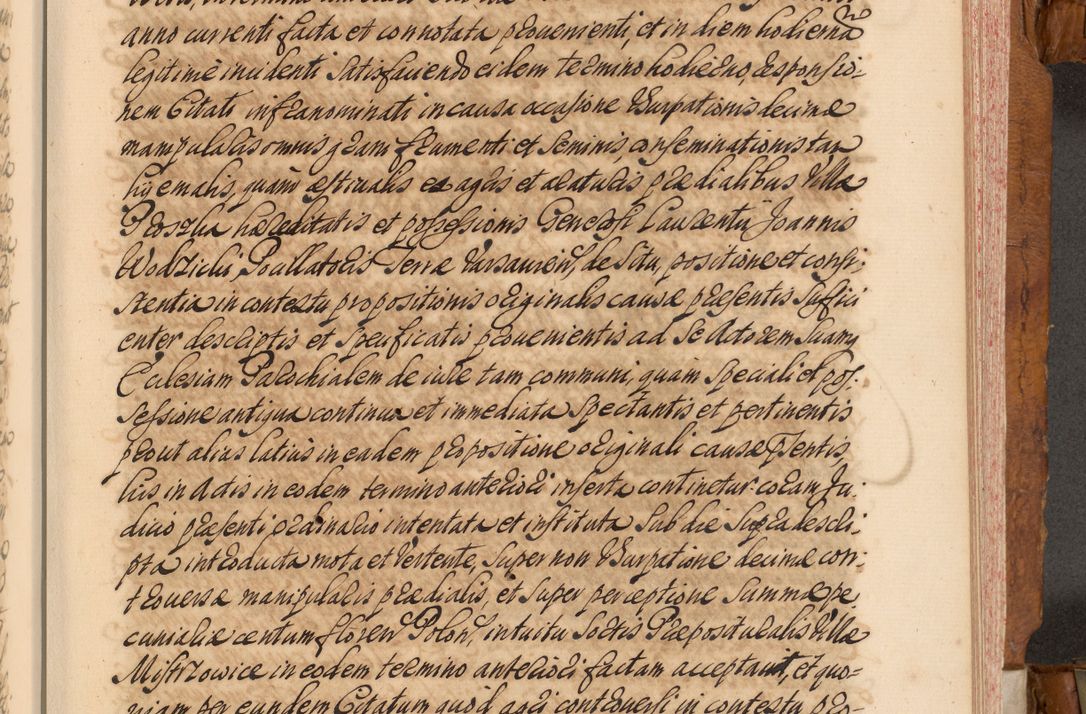 anno currenti facta et connotata provenienti, et in diem hodiernã
legitime incidenti Satisfaciendo eidem termino hodierno, responsio-
nem Citati infranominati in causa occasione Usurpationis decimæ
manipularis omnis grani frumenti et Seminis, conseminationis tam
hyemalis, quàm æstivalis ex agris et areaturis prædialibus Villæ
Proszlu hæreditatis et possessionis Generosi Laurentii Joannis
Wodzicki, Poullatoris Terræ Varsavien, de Situ, positione et consi-
stentia in contextu propositionis originalis causæ præsentis Suffici
enter descriptis et Specificatis provenientis ad Se Actorem Suamq
Ecclesiam Parochialem de iure tam communi, quàm Speciali et pos-
sessione antiqua continua et immediata Spectantis et pertinentis
prout alias latius in eadem propositione originali causæ Psentis,
huis in Actis in eodem termino anteriori inserta continetur: coram Ju-
dicio præsenti ordinario intentata et instituta Sub die Supra descri-
pta introducta mota et Vertente, Super non Usurpatione decimæ con-
troversæ manipularis prædialis, et Super perceptione Summæ pe
cuniariæ centum floren Polon, intuitu Sortis Præposituralis Villæ
Mistrzowice in eodem termino anteriori factam acceptavit, et quo-
niam per eundem Citatum quod agri controversi in contextu pro-